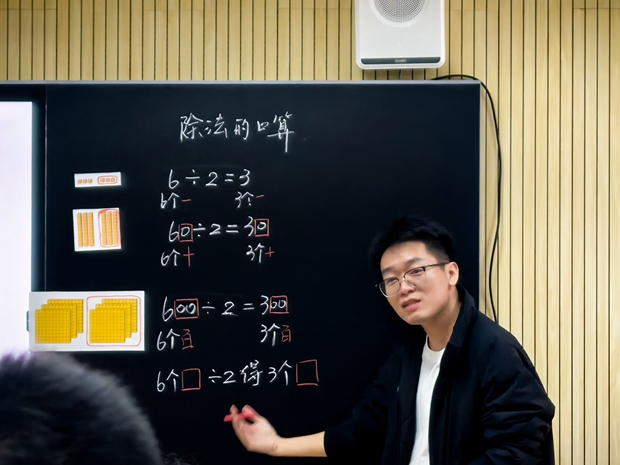 除法的口算
6÷2=3
6个一 3个一
60÷2=30
6个十 3个十
600÷2=300
6个百 3个百
6个□÷2得3个□